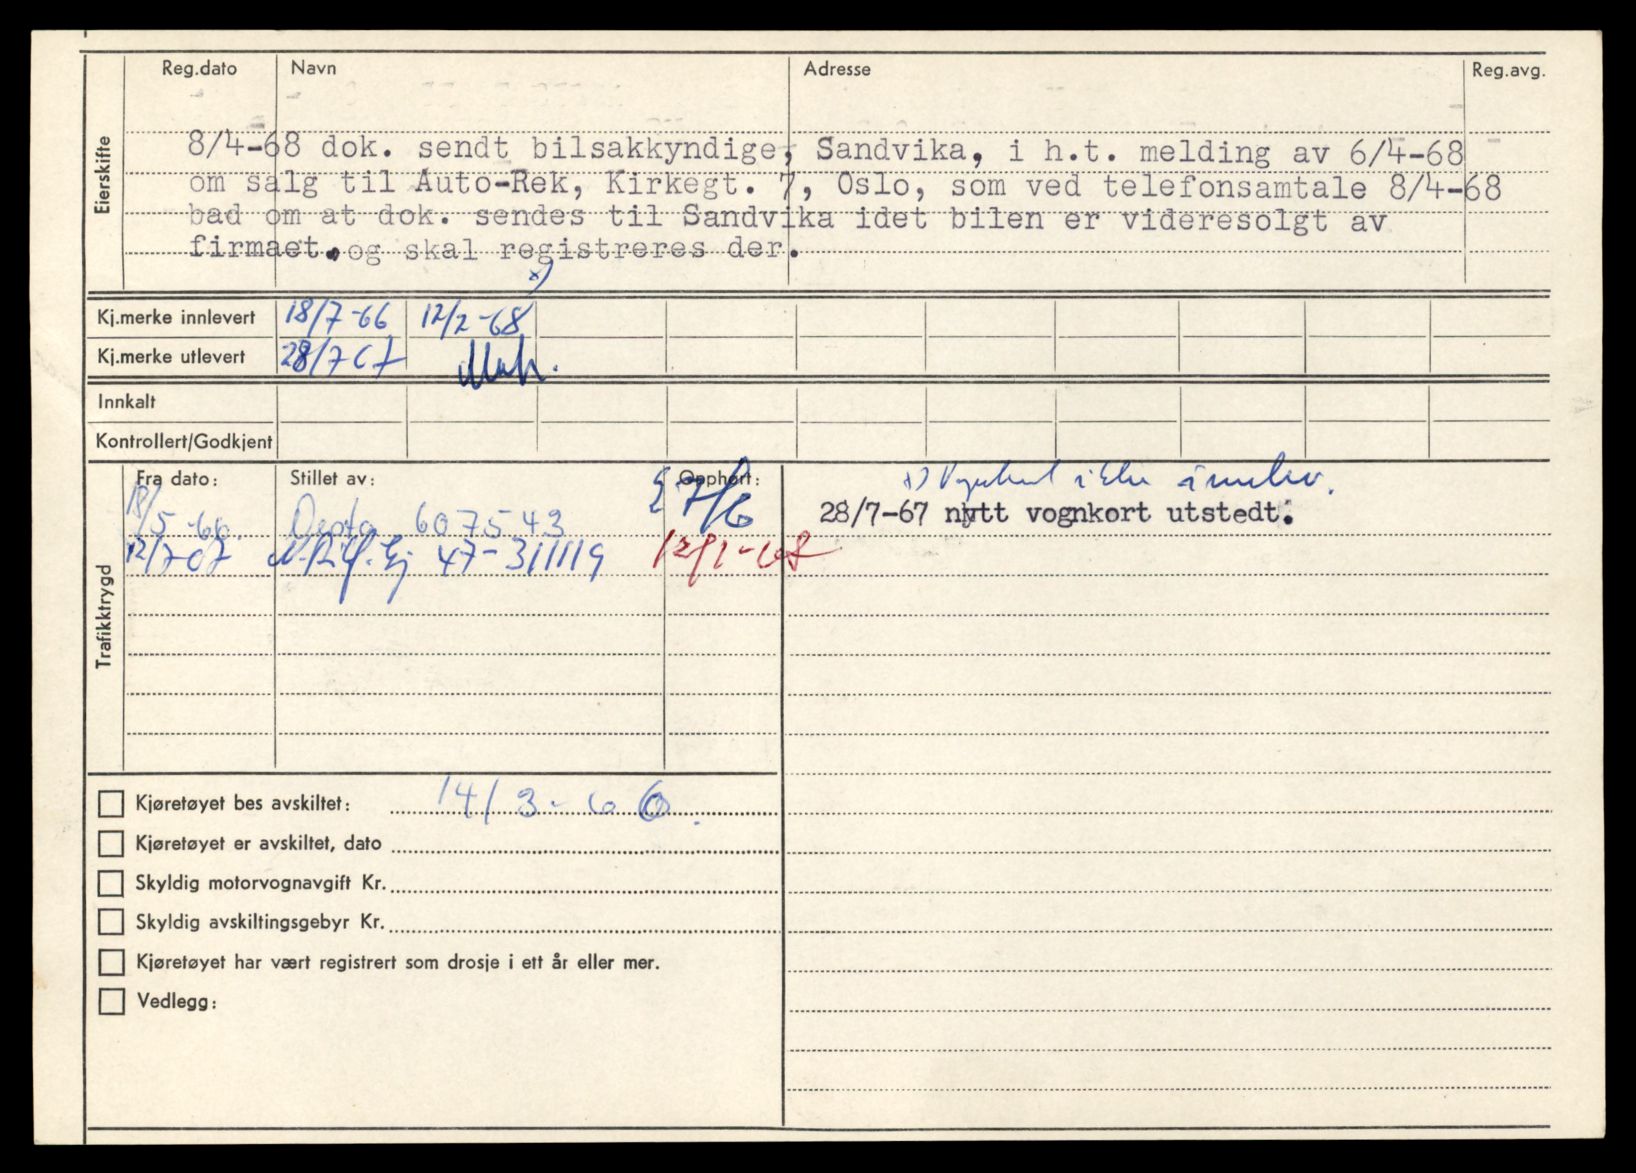 Reg.dato Navn Adresse Reg.avg.
Eierskifte
8/4-68 dok. sendt bilsakkyndige, Sandvika, i h.t. melding av 6/4-68
om salg til Auto-Rek, Kirkegt. 7, Oslo, som ved telefonsamtale 8/4-68
bad om at dok. sendes til Sandvika idet bilen er videresolgt av
firmaet. og skal registreres der.
x)
Kj.merke innlevert 18/7-66 12/2-68
Kj.merke utlevert 28/7 67
Innkalt
Kontrollert/Godkjent
Trafikktrygd
Fra dato: Stillet av: Opphørt: x) ikke
18/5-66. 607543 7/6 28/7-67 nytt vognkort utstedt.
12/7-67 47-311119
Kjøretøyet bes avskiltet: 14/3-66.
Kjøretøyet er avskiltet, dato
Skyldig motorvognavgift Kr.
Skyldig avskiltingsgebyr Kr.
Kjøretøyet har vært registrert som drosje i ett år eller mer.
Vedlegg: